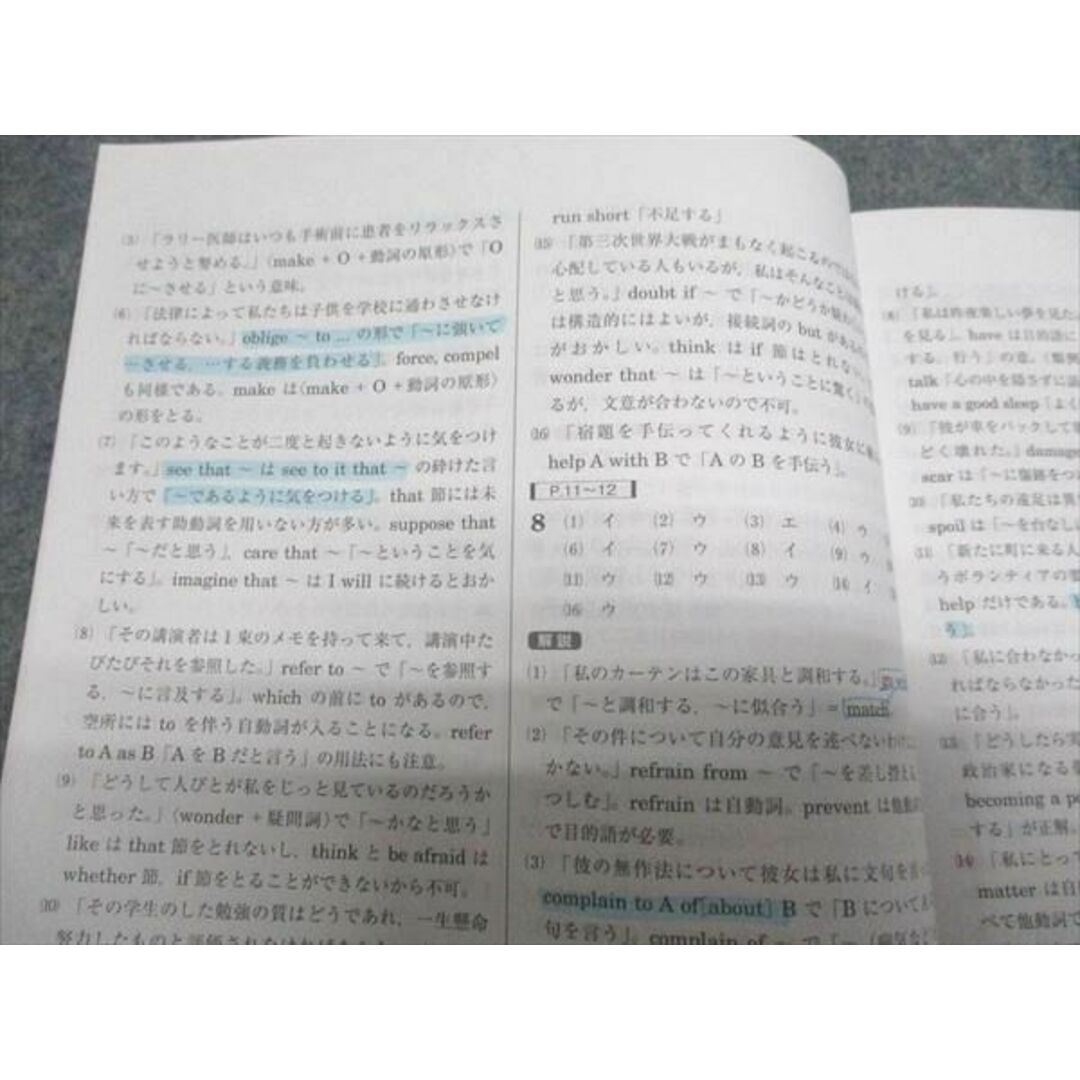 (5) 「ラリー医師はいつも手術前に患者をリラックスさ
せようと努める。」〈make + O + 動詞の原形〉で「O
に~させる」という意味。
(6) 「法律によって私たちは子供を学校に通わさせなけ
ればならない。」oblige ~ to … の形で「~に強いて
…させる, …する義務を負わせる」。force, compel
も同様である。make は〈make + O + 動詞の原形〉
の形をとる。
(7) 「このようなことが二度と起きないように気をつけ
ます。」see that ~ は see to it that ~ の砕けた言
い方で「~であるように気をつける」。that 節には未
来を表す助動詞を用いない方が多い。suppose that
~「~だと思う」, care that ~「~ということを気
にする」。imagine that ~ は I will に続けるとおか
しい。
(8) 「その講演者は1束のメモを持って来て, 講演中た
びたびそれを参照した。」refer to ~ で「~を参照す
る, ~に言及する」。which の前に to があるので,
空所には to を伴う自動詞が入ることになる。refer
to A as B「A を B だと言う」の用法にも注意。
(9) 「どうして人びとが私をじっと見ているのだろうか
と思った。」〈wonder + 疑問詞〉で「~かなと思う」
like は that 節をとれないし, think と be afraid は
whether 節, if 節をとることができないから不可。
(10) 「その学生のした勉強の質はどうであれ, 一生懸命
努力したものと評価されなければ
run short「不足する」
(15) 「第三次世界大戦がまもなく起こるのでは
心配している人もいるが, 私はそんなことは
と思う。」doubt if ~ で「~かどうか疑
は構造的にはよいが, 接続詞の but が
がおかしい。think は if 節はとれない。
wonder that ~ は「~ということに驚く」の
るが, 文意が合わないので不可。
(16) 「宿題を手伝ってくれるように彼女に
help A with B で「A の B を手伝う」。
P.11~12
8 (1) イ (2) ウ (3) エ (4) ウ
(6) イ (7) ウ (8) イ (9) ウ
(11) ウ (12) ウ (13) ウ (14) イ
(16) ウ
解説
(1) 「私のカーテンはこの家具と調和する。」
で「~と調和する, ~に似合う」= match
(2) 「その件について自分の意見を述べないわけに
かない。」refrain from ~ で「~を差し控え
つしむ」。refrain は自動詞。prevent は他動
で目的語が必要。
(3) 「彼の無作法について彼女は私に文句を言
complain to A of[about] B で「B について A
句を言う」。complain of ~ で「~(病気な
ける」。
(8) 「私は昨夜楽しい夢を見た
を見る」。have は目的語に
する, 行う」の意。(類例
talk「心の中を隠さずに話
have a good sleep「よく
(9) 「彼が車をバックして
どく壊れた。」damage
scar は「~に傷跡をつ
(10) 「私たちの遠足は
spoil は「~を台なし
(11) 「新たに町に来る人
うボランティアの
help だけである。
う」。
(12) 「私に合わなかっ
ればならなかった
に合う」。
(13) 「どうしたら実
政治家になる
becoming a po
する」が正解。
(14) 「私にとって
matter は自
べて他動詞で